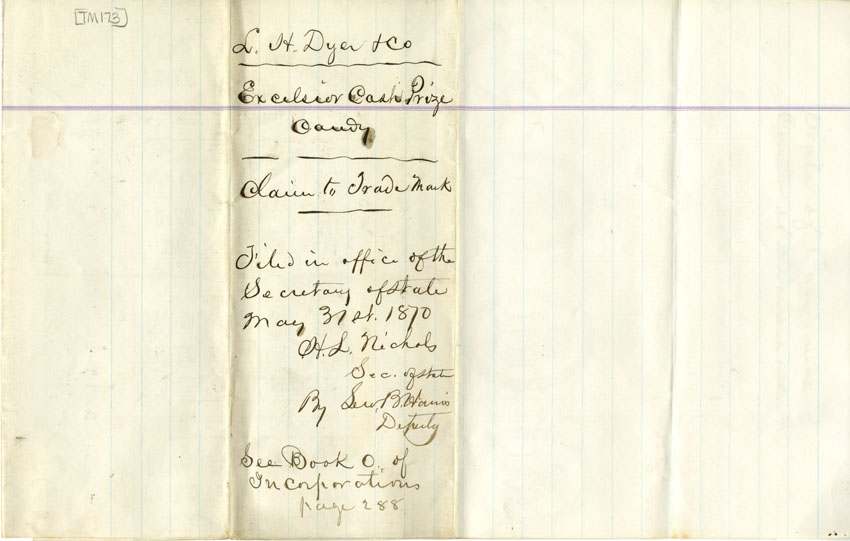 [TM123]
L. H. Dyer & Co
Excelsior Cash Prize
Candy
Claim to Trade Mark
Filed in office of the
Secretary of state
May 31st. 1870
H. L. Nichols
Sec. of state
By Lew. B. Harris
Deputy
See Book O, of
Incorporations
page 288